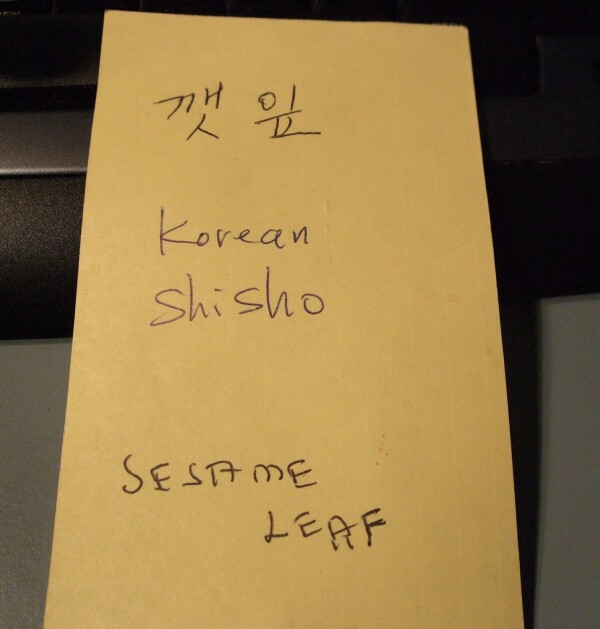 깻잎
Korean
Shisho
SESAME
LEAF